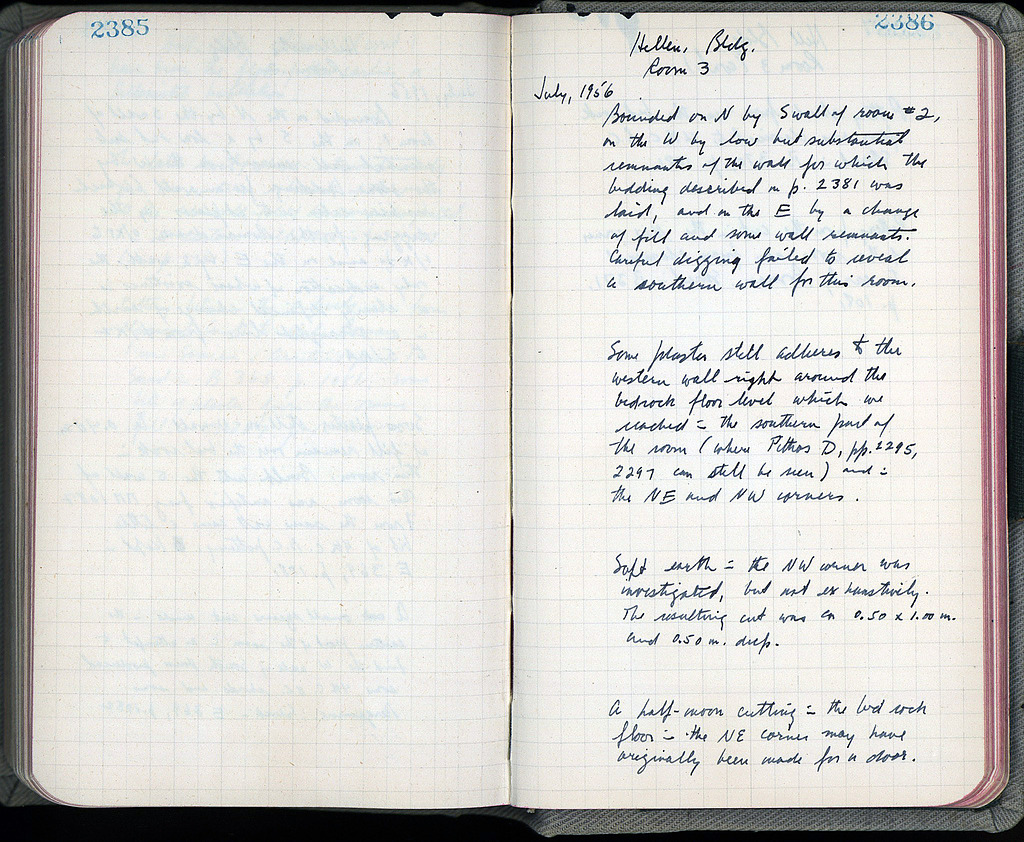 2385
2386
Hellen. Bldg.
Room 3
July, 1956
Bounded on N by S wall of room #2,
on the W by low but substantial
remnants of the wall for which the
bedding described on p. 2381 was
laid, and on the E by a change
of fill and some wall remnants.
Careful digging failed to reveal
a southern wall for this room.
Some plaster still adheres to the
western wall right around the
bedrock floor level which we
reached = the southern part of
the room (where Pithos D, pp. 2295,
2297 can still be seen) and =
the NE and NW corners.
Soft earth = the NW corner was
investigated, but not exhaustively.
The resulting cut was ca 0.50 x 1.00 m.
and 0.50 m. deep.
A half-moon cutting = the bed rock
floor = the NE corner may have
originally been made for a door.